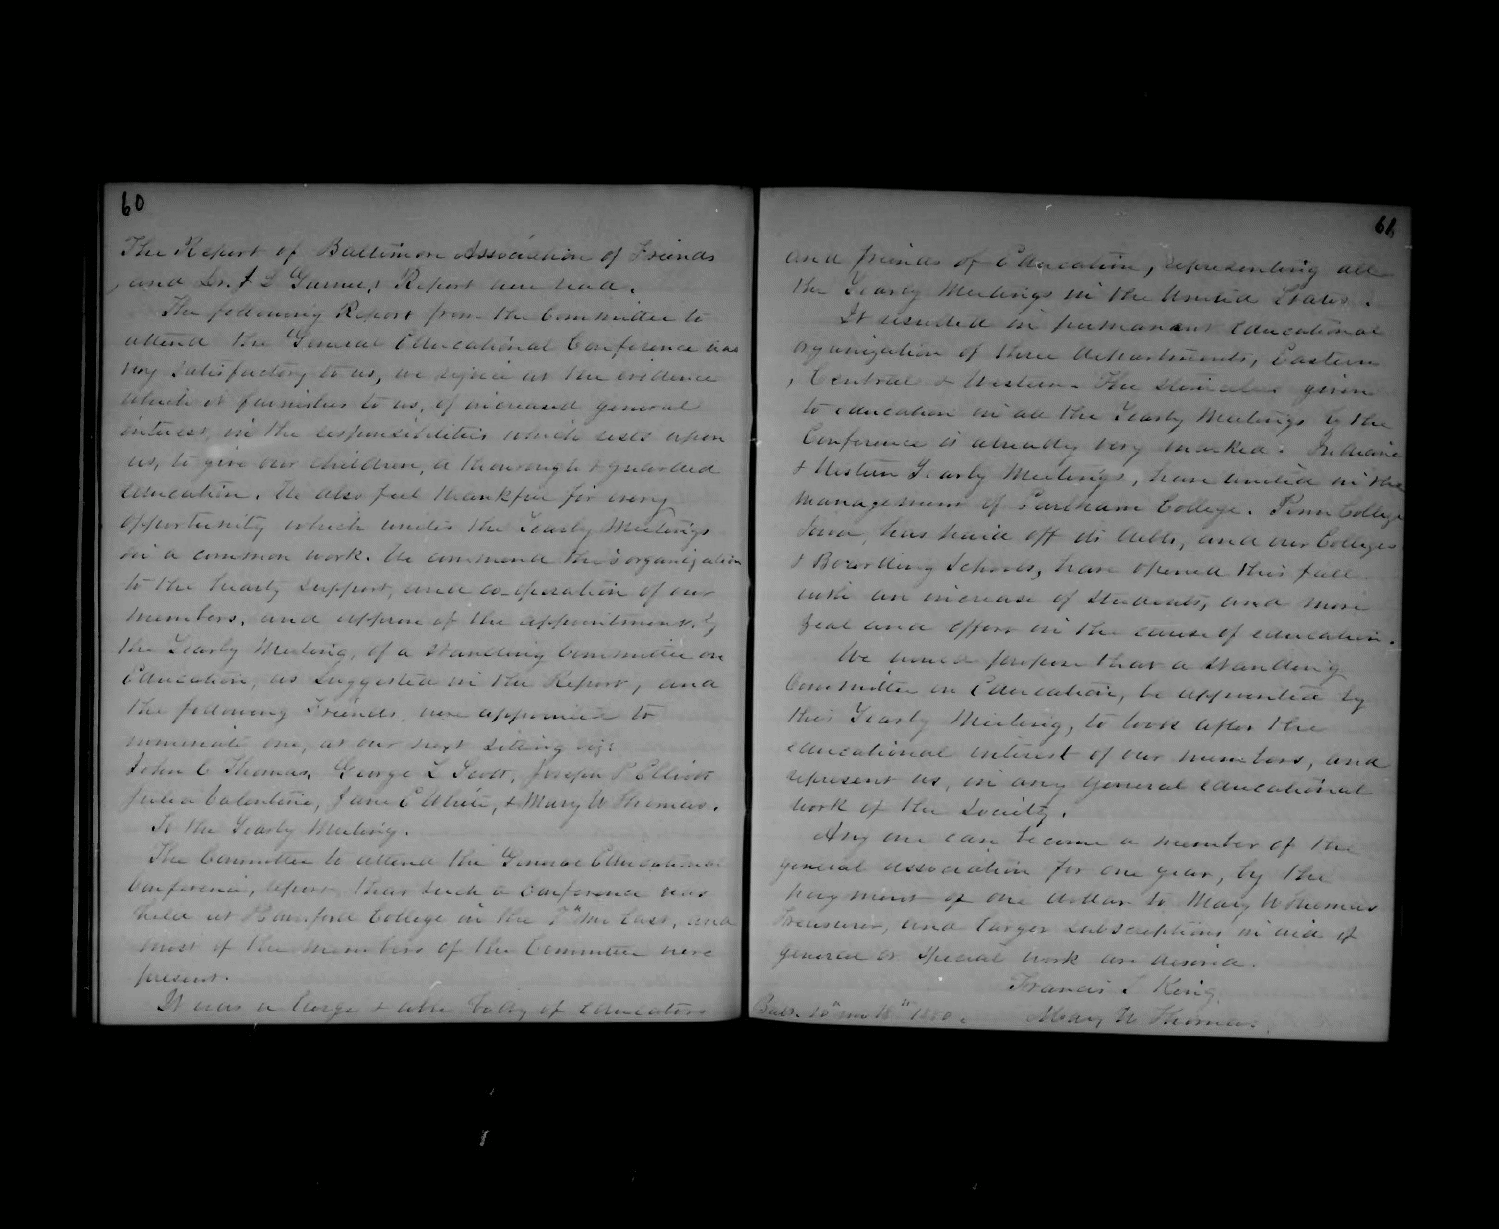 60
The Report of Baltimore Association of Friends
and Dr. J D Garner's Report were read.
The following Report from the Committee to
attend the General Educational Conference was
very satisfactory to us, we rejoice at the evidence
which it furnishes to us, of increased general
interest, in the responsibilities which rests upon
us, to give our children, a thorough & guarded
education. We also feel thankful for every
opportunity which unites the Yearly Meetings
in a common work. We commend this organization
to the hearty support, and co-operation of our
members, and approve of the appointment by
the Yearly Meeting, of a standing Committee on
Education, as suggested in the Report, and
the following Friends were appointed to
nominate one, at our next sitting viz:
John C Thomas, George L Scott, Joseph P Elliott
Julia Valentine, Jane E White, & Mary W Thomas.
To the Yearly Meeting.
The Committee to attend the General Educational
Conference, report that such a Conference was
held at Haverford College in the 7th mo last, and
most of the members of the Committee were
present.
It was a large & able body of educators
61
and friends of Education, representing all
the Yearly Meetings in the United States.
It resulted in permanent educational
organization of three departments, Eastern
, Central & Western. The stimulus given
to education in all the Yearly Meetings by the
Conference is already very marked. Indiana
& Western Yearly Meetings, have united in the
management of Earlham College. Penn College
Iowa, has paid off its debts, and our Colleges
& Boarding Schools, have opened this fall
with an increase of students, and more
zeal and effort in the cause of education.
We would propose that a standing
Committee on Education, be appointed by
this Yearly Meeting, to look after the
educational interest of our members, and
represent us, in any general educational
work of the Society.
Any one can become a member of the
general association for one year, by the
payment of one dollar to Mary W Thomas
Treasurer, and larger subscriptions in aid of
general or special work are desired.
Francis T King
Balt. 10th mo 18th 1880. Mary W Thomas.